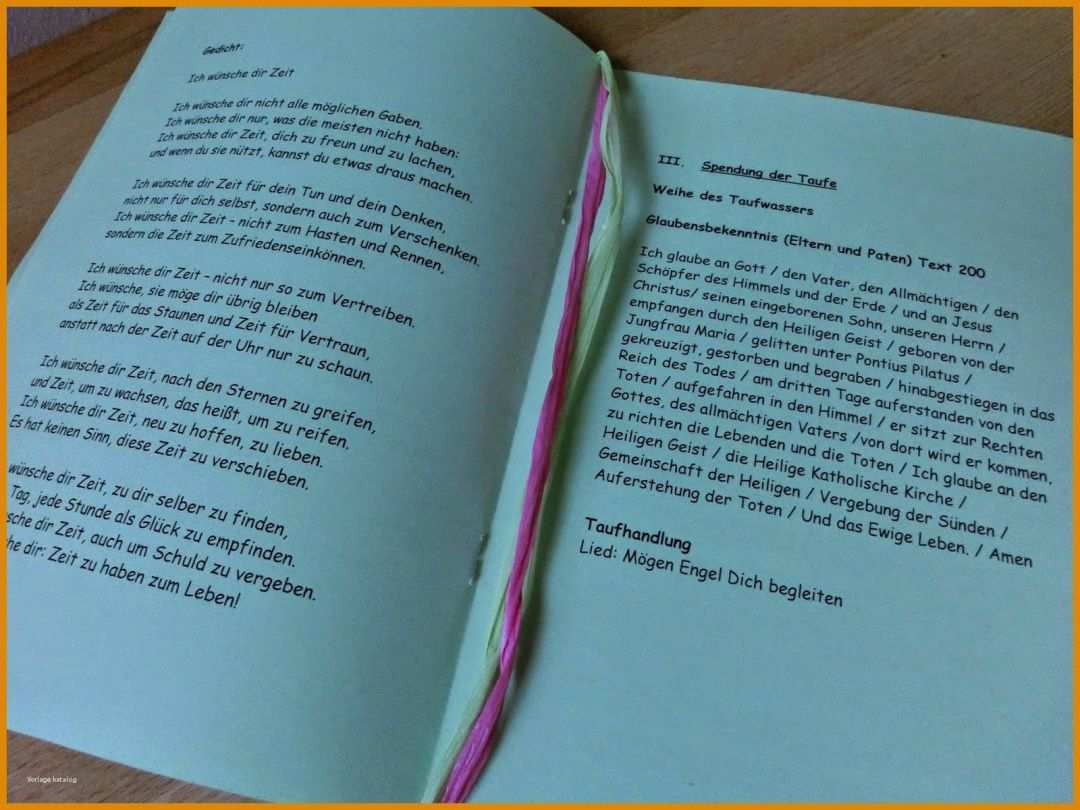 Gedicht:
Ich wünsche dir Zeit
Ich wünsche dir nicht alle möglichen Gaben.
Ich wünsche dir nur, was die meisten nicht haben:
Ich wünsche dir Zeit, dich zu freun und zu lachen,
und wenn du sie nützt, kannst du etwas draus machen.
Ich wünsche dir Zeit für dein Tun und dein Denken,
nicht nur für dich selbst, sondern auch zum Verschenken.
Ich wünsche dir Zeit – nicht zum Hasten und Rennen,
sondern die Zeit zum Zufriedenseinkönnen.
Ich wünsche dir Zeit – nicht nur so zum Vertreiben.
Ich wünsche, sie möge dir übrig bleiben
als Zeit für das Staunen und Zeit für Vertraun,
anstatt nach der Zeit auf der Uhr nur zu schaun.
Ich wünsche dir Zeit, nach den Sternen zu greifen,
und Zeit, um zu wachsen, das heißt, um zu reifen.
Ich wünsche dir Zeit, neu zu hoffen, zu lieben.
Es hat keinen Sinn, diese Zeit zu verschieben.
wünsche dir Zeit, zu dir selber zu finden,
Tag, jede Stunde als Glück zu empfinden.
sche dir Zeit, auch um Schuld zu vergeben.
he dir: Zeit zu haben zum Leben!
III. Spendung der Taufe
Weihe des Taufwassers
Glaubensbekenntnis (Eltern und Paten) Text 200
Ich glaube an Gott / den Vater, den Allmächtigen / den
Schöpfer des Himmels und der Erde / und an Jesus
Christus/ seinen eingeborenen Sohn, unseren Herrn /
empfangen durch den Heiligen Geist / geboren von der
Jungfrau Maria / gelitten unter Pontius Pilatus /
gekreuzigt, gestorben und begraben / hinabgestiegen in das
Reich des Todes / am dritten Tage auferstanden von den
Toten / aufgefahren in den Himmel / er sitzt zur Rechten
Gottes, des allmächtigen Vaters /von dort wird er kommen,
zu richten die Lebenden und die Toten / Ich glaube an den
Heiligen Geist / die Heilige Katholische Kirche /
Gemeinschaft der Heiligen / Vergebung der Sünden /
Auferstehung der Toten / Und das Ewige Leben. / Amen
Taufhandlung
Lied: Mögen Engel Dich begleiten
Vorlage katalog